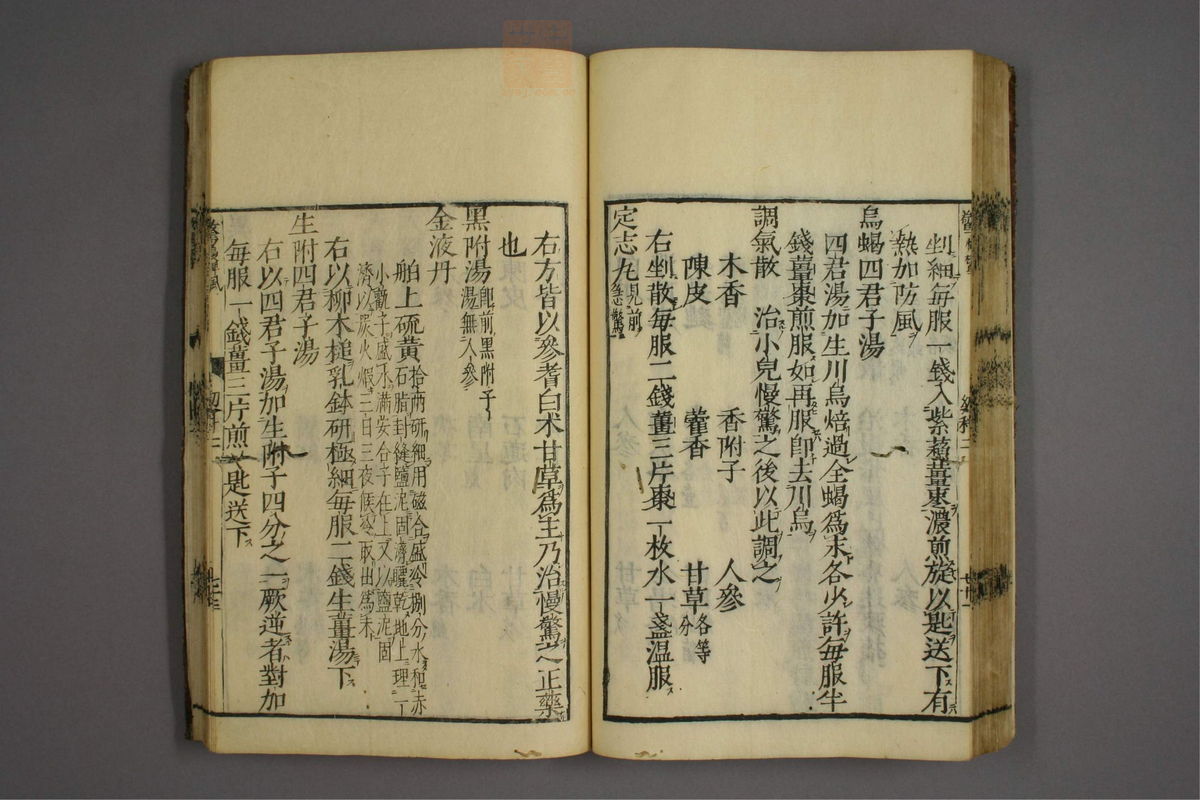 剉細每服一錢入紫蘓薑棗濃煎旋以匙送下有
熱加防風
烏蝎四君子湯
四君湯加生川烏焙過全蝎爲末各少許每服半
錢薑棗煎服如再服即去川烏
調氣散 治小兒慢驚之後以此調之
木香 香附子 人參
陳皮 藿香 甘草各等分
右剉散每服二錢薑三片棗一枚水一盞温服
定志丸見前急驚
右方皆以參耆白术甘草爲主乃治慢驚之正藥
也
黑附湯即前黑附子湯無人參
金液丹
舶上硫黄拾兩研細用磁合盛冷捌分水和赤石脂封縫鹽泥固濟曬乾地上理一小觀子盛水滿安合子在上又以鹽泥固濟以炭火煆三日三夜候冷取出爲末
右以柳木槌乳鉢研極細每服二錢生薑湯下
生附四君子湯
右以四君子湯加生附子四分之一厥逆者對加
每服一錢薑三片煎匙送下